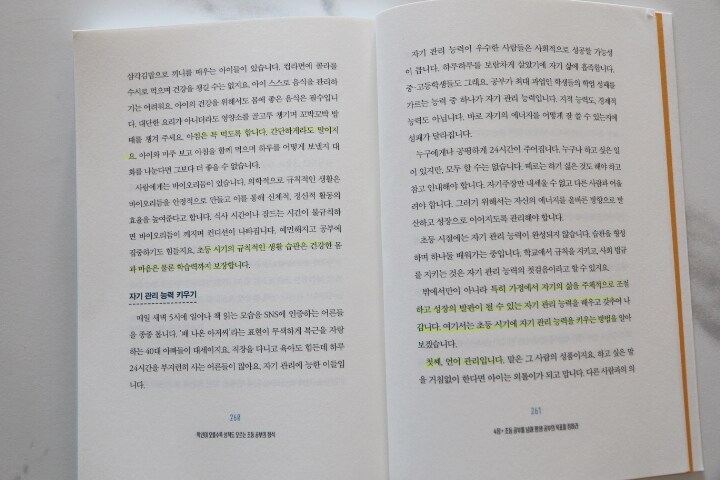 삼각김밥으로 끼니를 때우는 아이들이 있습니다. 컵라면에 콜라를
수시로 먹으며 건강을 챙길 수는 없지요. 아이 스스로 음식을 관리하
기는 어려워요. 아이의 건강을 위해서도 몸에 좋은 음식은 필수입니
다. 대단한 요리가 아니더라도 영양소를 골고루 챙기며 꼬박꼬박 밥
때를 챙겨 주세요. 아침은 꼭 먹도록 합니다. 간단하게라도 말이지
요. 아이와 마주 보고 아침을 함께 먹으며 하루를 어떻게 보낼지 대
화를 나눈다면 그보다 더 좋을 수 없습니다.
사람에게는 바이오리듬이 있습니다. 의학적으로 규칙적인 생활은
바이오리듬을 안정적으로 만들고 이를 통해 신체적, 정신적 활동의
효율을 높여준다고 합니다. 식사 시간이나 잠드는 시간이 불규칙하
면 바이오리듬이 깨지며 컨디션이 나빠집니다. 예민해지고 공부에
집중하기도 힘들지요. 초등 시기의 규칙적인 생활 습관은 건강한 몸
과 마음은 물론 학습력까지 보장합니다.
자기 관리 능력 키우기
매일 새벽 5시에 일어나 책 읽는 모습을 SNS에 인증하는 어른들
을 종종 봅니다. '배 나온 아저씨'라는 표현이 무색하게 복근을 자랑
하는 40대 아빠들이 대세이지요. 직장을 다니고 육아도 힘든데 하루
24시간을 부지런히 사는 어른들이 많아요. 자기 관리에 능한 이들입
니다.
260
학년이 오를수록 성적도 오르는 초등 공부의 정석
자기 관리 능력이 우수한 사람들은 사회적으로 성공할 가능성
이 큽니다. 하루하루를 보람차게 살았기에 자기 삶에 흡족합니다.
중·고등학생들도 그래요. 공부가 최대 과업인 학생들의 학업 성패를
가르는 능력 중 하나가 자기 관리 능력입니다. 지적 능력도, 경제적
능력도 아닙니다. 바로 자기의 에너지를 어떻게 잘 쓸 수 있는지에
성패가 달라집니다.
누구에게나 공평하게 24시간이 주어집니다. 누구나 하고 싶은 일
이 있지만, 모두 할 수는 없습니다. 때로는 하기 싫은 것도 해야 하고
참고 인내해야 합니다. 자기주장만 내세울 수 없고 다른 사람과 어울
려야 합니다. 그러기 위해서는 자신의 에너지를 올바른 방향으로 발
산하고 성장으로 이어지도록 관리해야 합니다.
초등 시절에는 자기 관리 능력이 완성되지 않습니다. 습관을 형성
하며 하나둘 배워가는 중입니다. 학교에서 규칙을 지키고, 사회 법규
를 지키는 것은 자기 관리 능력의 첫걸음이라고 할 수 있지요.
밖에서만이 아니라 특히 가정에서 자기의 삶을 주체적으로 조절
하고 성장의 발판이 될 수 있는 자기 관리 능력을 배우고 갖추어 나
갑니다. 여기서는 초등 시기에 자기 관리 능력을 키우는 방법을 알아
보겠습니다.
첫째, 언어 관리입니다. 말은 그 사람의 성품이지요. 하고 싶은 말
을 거침없이 한다면 아이는 외톨이가 되고 맙니다. 다른 사람과의 의
261
4장 · 초등 공부를 넘어 평생 공부의 목표를 정하라